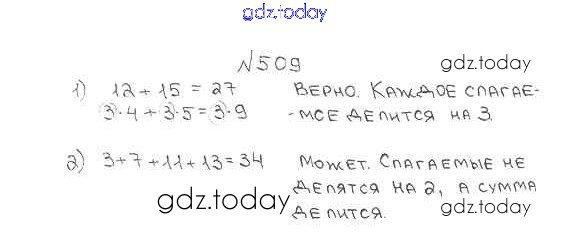 gdz.today
№509
gdz.today
1) 12 + 15 = 27 ВЕРНО. КАЖДОЕ СЛАГАЕ-
3·4 + 3·5 = 3·9 -МОЕ ДЕЛИТСЯ НА 3.
2) 3+7+11+13=34 МОЖЕТ. СЛАГАЕМЫЕ НЕ
ДЕЛЯТСЯ НА 2, А СУММА
gdz.today
ДЕЛИТСЯ.
gdz.today